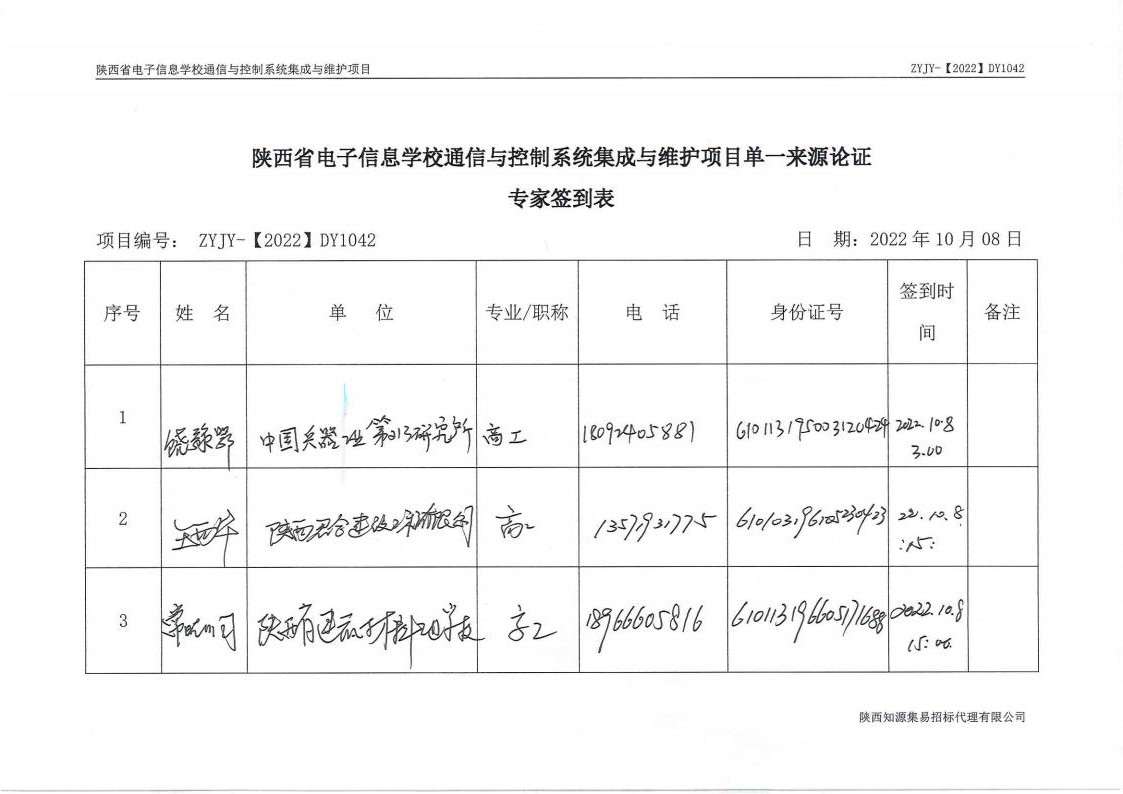 陕西省电子信息学校通信与控制系统集成与维护项目 ZYJY-【2022】DY1042
陕西省电子信息学校通信与控制系统集成与维护项目单一来源论证
专家签到表
项目编号： ZYJY-【2022】DY1042 日 期：2022年10月08日
序号 姓 名 单 位 专业/职称 电 话 身份证号 签到时间 备注
1 中国兵器工业第213研究所 高工 18092405881 610113195003120424 2022.10.8
3.00
2 王西华 高工 22.10.8
:15:
3 高工 18966605816 2022.10.8
15:00
陕西知源集易招标代理有限公司